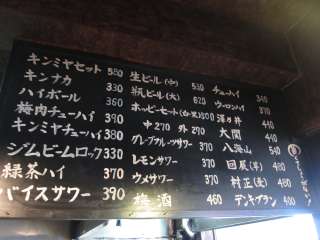 キンミヤセット 580
キンナカ 330
ハイボール 360
梅肉チューハイ 390
キンミヤチューハイ 380
ジムビームロック 330
緑茶ハイ 370
バイスサワー 390
生ビール(中) 530
瓶ビール(大) 620
ホッピーセット(白・黒) 480
中270 外270
グレープフルーツサワー 380
レモンサワー 370
ウメサワー 370
梅酒 460
チューハイ 340
ウーロンハイ 370
澤乃井 440
大関
八海山 540
田辰(辛) 480
村正(虎) 480
デンキブラン 400